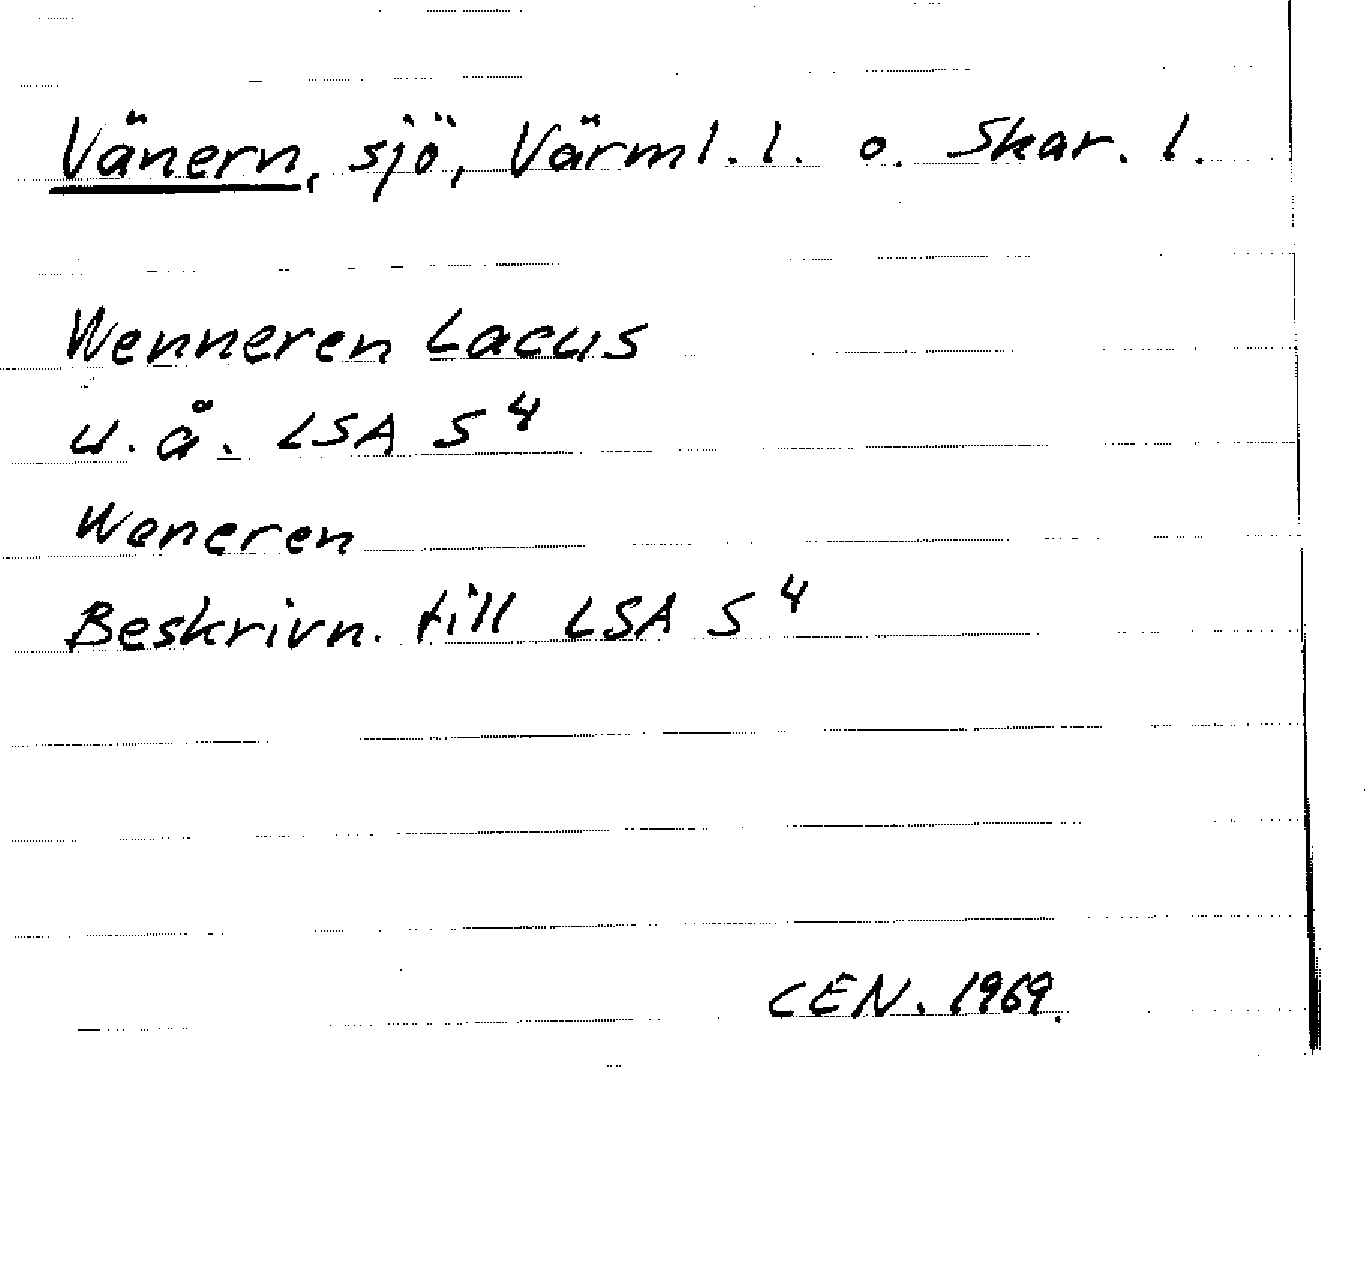 Vänern, sjö, Värml. l. o. Skar. l.
Wenneren Lacus
u. å. LSA S 4
Weneren
Beskrivn. till LSA S 4
CEN. 1969.